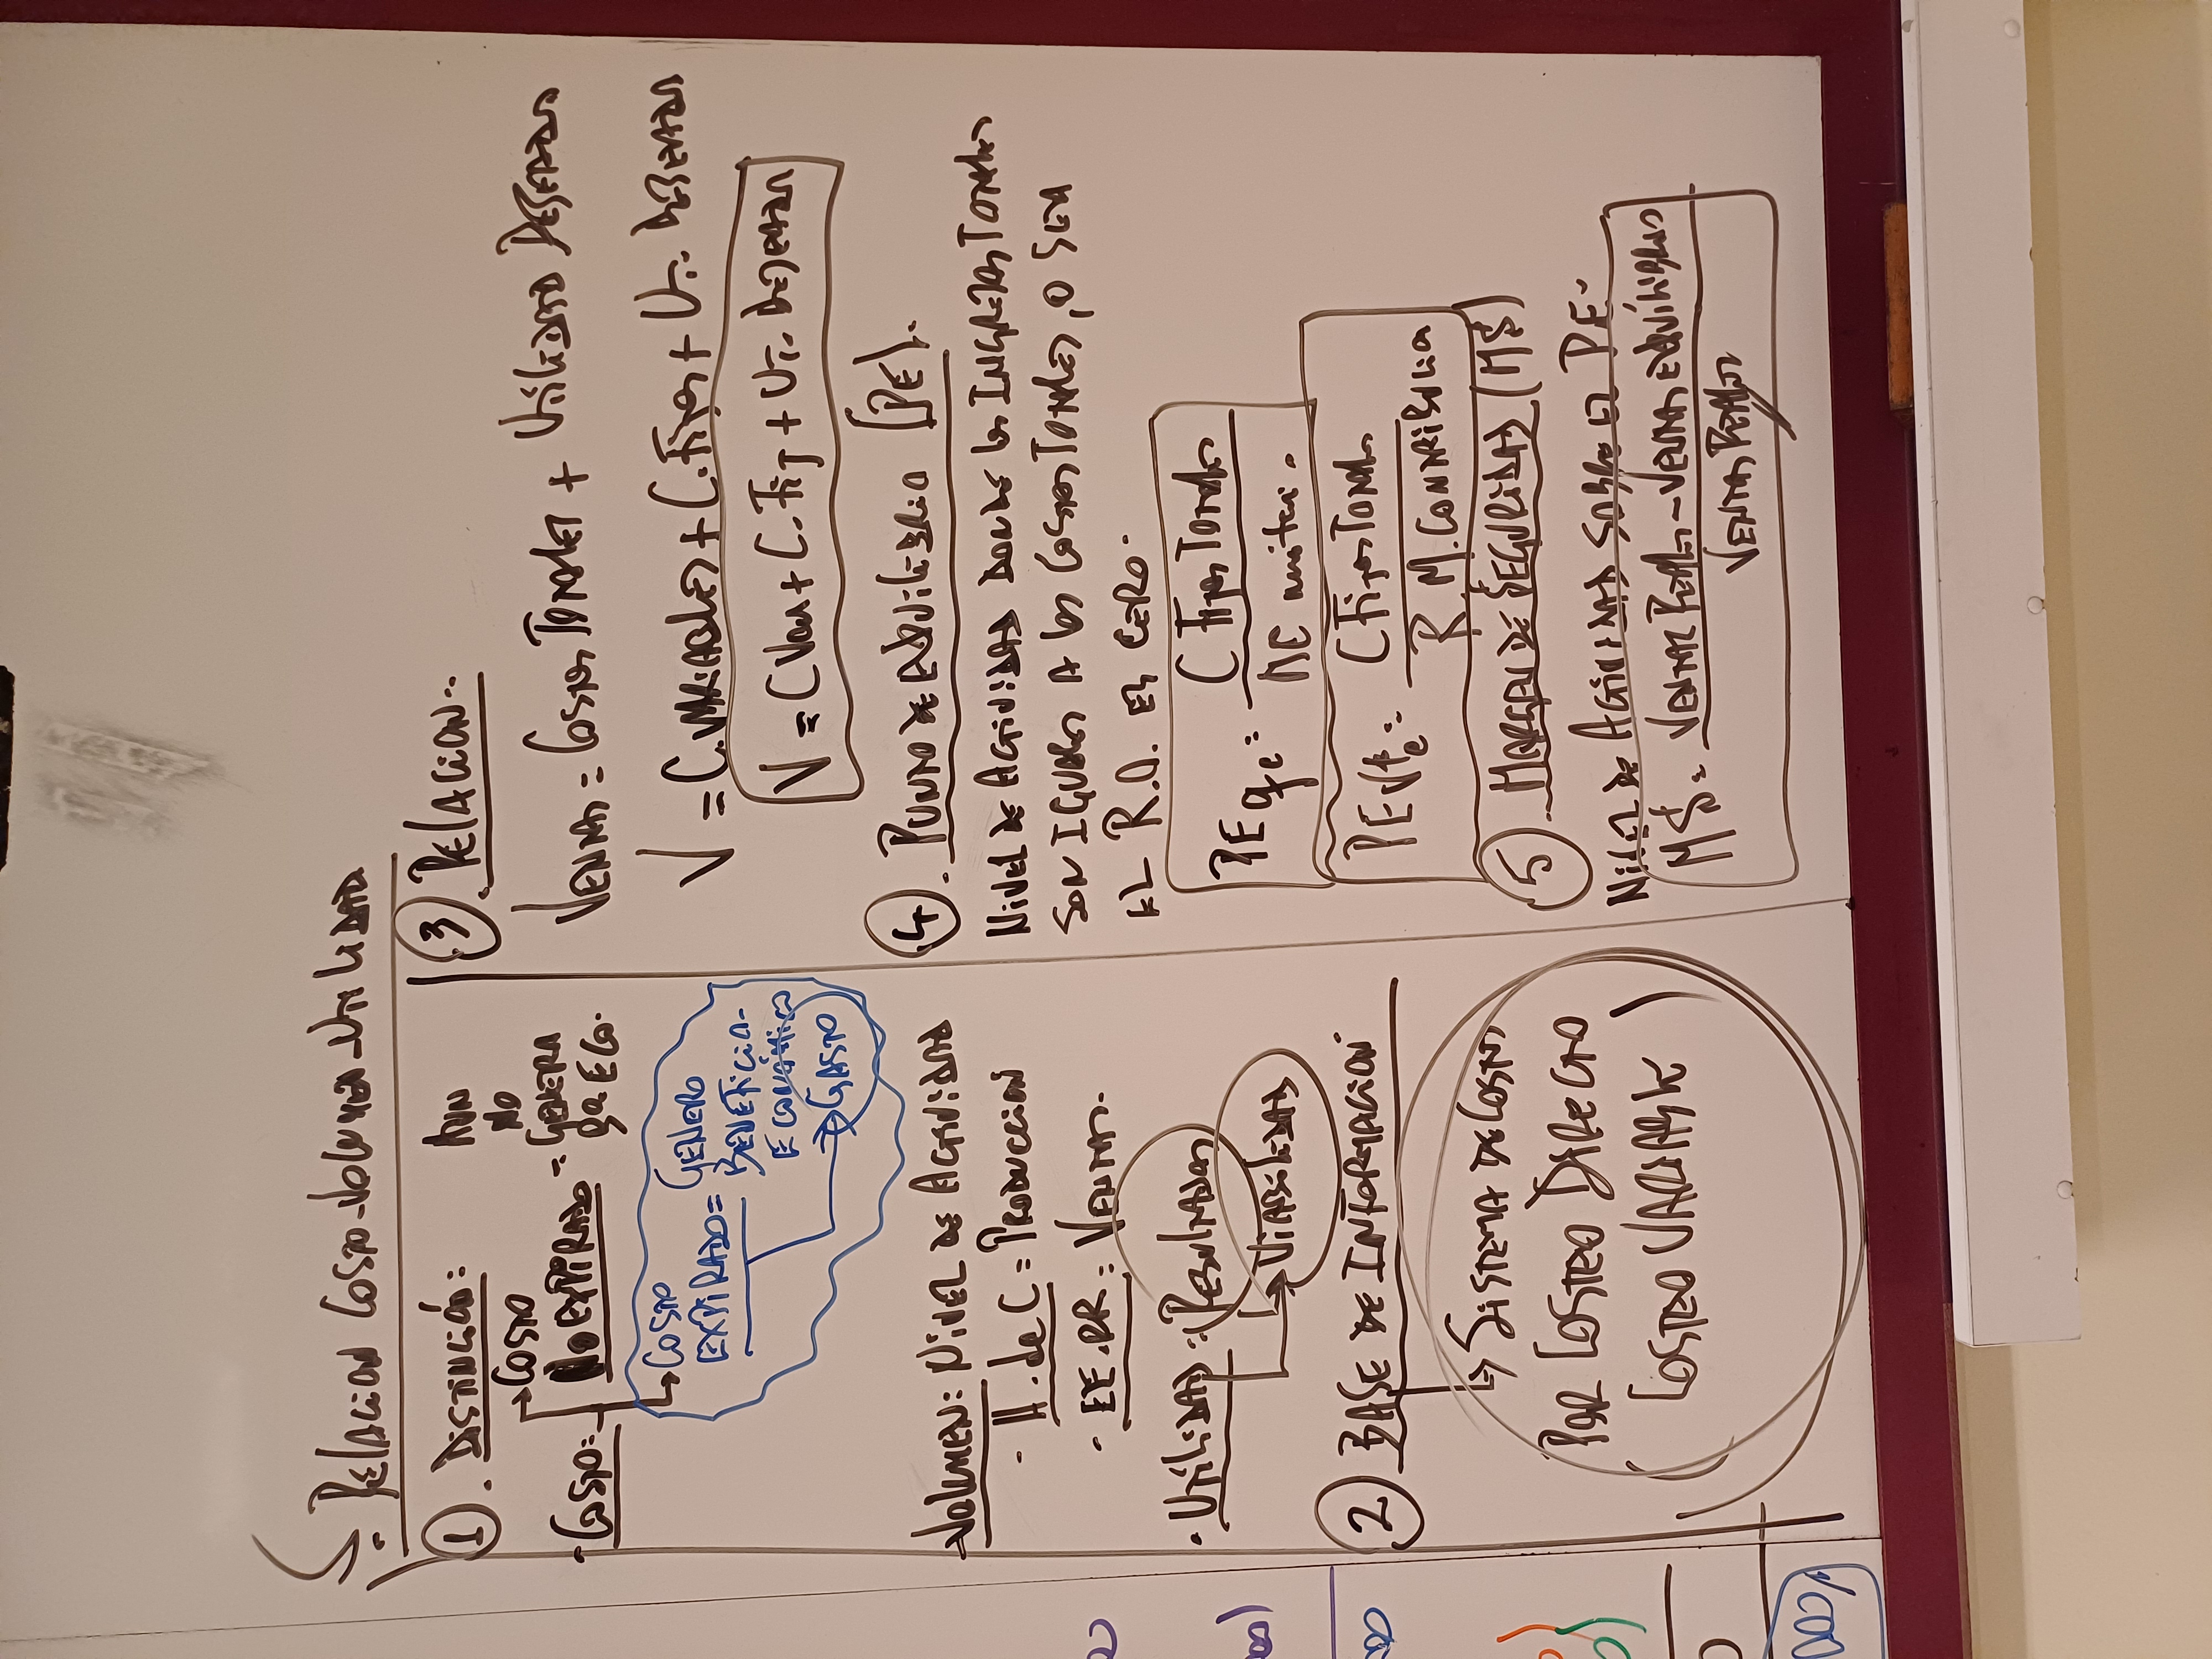 - Relacion Costo-Volumen-Utilidad
1. Distinción:
- Costo:
Costo
No Expirado = Aun
No
Genera
Eco.
Costo
Expirado = Genero
Beneficio-
Económico
Gasto
- Volumen: Nivel de Actividad
- H. de C = Producción
- EE.RR = Ventas.
- Utilidad = Resultados
Viabilidad
2 Base de Información
Sistema de Costos
Por Costeo Directo
(Costeo Variable)
3. Relacion..
Ventas = Costos Totales + Utilidad Deseada
V = C. Variables + C. Fijos + Ut. Deseada
V = C Var + C. Fij + Ut. Desead
4. Punto de Equilibrio (PE).
Nivel de Actividad donde los Ingresos Totales
son iguales a los Costos Totales, o sea
el R.O. es cero.
PE qe = C Fijos Totales
MC unitari.
PE Vte = C Fijos Totales
R. M. Contribucia
5. Margen de Seguridad (M$)
Nivel de Actividad sobre el PE.
M$ = Ventas Reales - Ventas Equilibrio
Ventas Reales